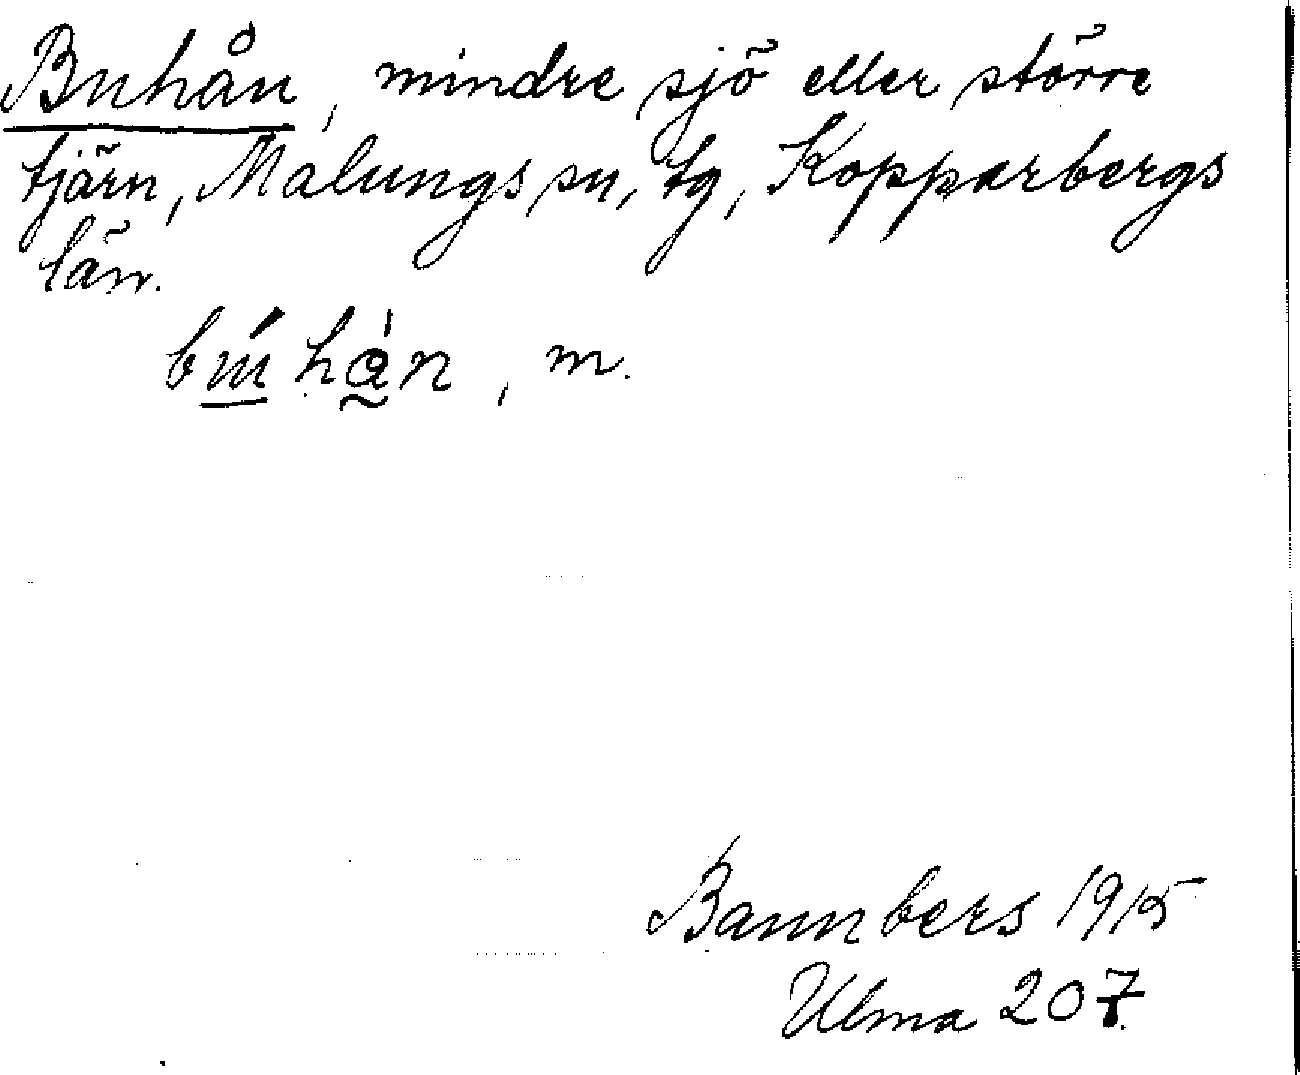 Buhån, mindre sjö eller större
tjärn, Malungs sn, tg, Kopparbergs
län.
búhån, m.
Bannbers 1915
Ulma 207.